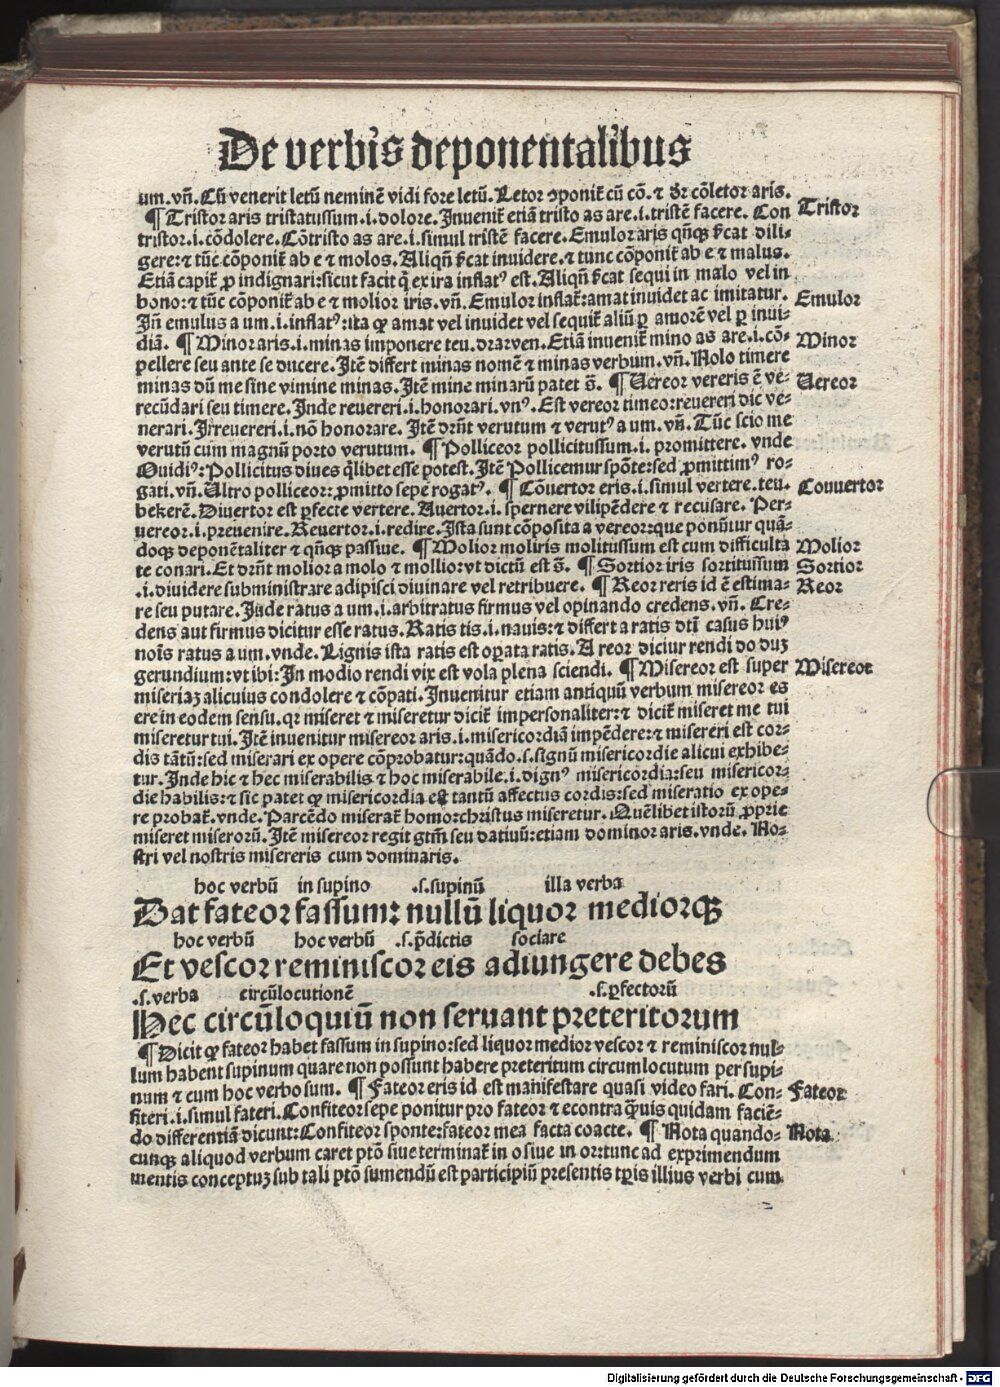 De verbis deponentalibus
um.vñ. Cũ venerit letũ neminẽ vidi fore letũ. Letor ↄponit̃ cũ cõ. ⁊ d̃r cõletor aris.
¶ Tristor aris tristatussum.i.dolore. Inuenit̃ etiã tristo as are.i.tristẽ facere. Con
Tristor
tristor.i.cõdolere. Cõtristo as are.i.simul tristẽ facere. Emulor aris qñqꝫ s̃cat dili⸗
gere:⁊ tũc cõponit̃ ab e ⁊ molos. Aliqñ s̃cat inuidere.⁊ tunc cõponit̃ ab e ⁊ malus.
Etiã capit̃ ꝓ indignari:sicut facit q̃ ex ira inflatꝰ est. Aliqñ s̃cat sequi in malo vel in
bono:⁊ tũc cõponit̃ ab e ⁊ molior iris.vñ. Emulor inflat̃:amat inuidet ac imitatur.
Emulor
Iñ emulus a um.i.inflatꝰ:ita ꝙ amat vel inuidet vel sequit̃ aliũ ꝑ amorẽ vel ꝑ inui⸗
diã. ¶ Minor aris.i.minas imponere teu.drarven. Etiã inuenit̃ mino as are.i.cõ⸗
Minor
pellere seu ante se ducere. Itẽ differt minas nomẽ ⁊ minas verbum.vñ. Nolo timere
minas dũ me sine vimine minas. Itẽ mine minarũ patet s̃. ¶ Uereor vereris ẽ ve⸗
Uereor
recũdari seu timere. Inde reuereri.i.honorari.vnꝰ. Est vereor timeo:reuereri dic ve⸗
nerari. Irreuereri.i.nõ honorare. Itẽ drñt verutum ⁊ verutꝰ a um.vñ. Tũc scio me
verutũ cum magnũ porto verutum. ¶ Polliceor pollicitussum.i.promittere.vnde
Ouidiꝰ:Pollicitus diues q̃libet esse potest. Itẽ Pollicemur spõte:sed ꝓmittimꝰ ro⸗
gati.vñ. Ultro polliceor:ꝓmitto sepe rogatꝰ. ¶ Cõuertor eris.i.simul vertere.teu.
Conuertor
bekerẽ. Diuertor est ꝑfecte vertere. Auertor.i.spernere vilipẽdere ⁊ recusare. Per⸗
uereor.i.preuenire. Reuertor.i.redire. Ista sunt cõposita a vereor:que ponũtur quã⸗
doqꝫ deponẽtaliter ⁊ qñqꝫ passiue. ¶ Molior moliris molitussum est cum difficulta
Molior
te conari. Et drñt molior a molo ⁊ mollior:vt dictũ est s̃. ¶ Sortior iris sortitussum
Sortior
.i.diuidere subministrare adipisci diuinare vel retribuere. ¶ Reor reris id ẽ estima⸗
Reor
re seu putare. Inde ratus a um.i.arbitratus firmus vel opinando credens.vñ. Cre⸗
dens aut firmus dicitur esse ratus. Ratis tis.i.nauis:⁊ differt a ratis dti casus huiꝰ
noĩs ratus a um.vnde. Lignis ista ratis est oꝑata ratis. A reor diciur rendi do duꝫ
gerundium:vt ibi:In modio rendi vix est vola plena sciendi. ¶ Misereor est super
Misereor
miseriaꝫ alicuius condolere ⁊ cõpati. Inuenitur etiam antiquũ verbum misereor es
ere in eodem sensu.qꝛ miseret ⁊ miseretur dicit̃ impersonaliter:⁊ dicit̃ miseret me tui
miseretur tui. Itẽ inuenitur misereor aris.i.misericordiã impẽdere:⁊ misereri est cor⸗
dis tãtũ:sed miserari ex opere cõprobatur:quãdo.s.signũ misericordie alicui exhibe⸗
tur. Inde hic ⁊ hec miserabilis ⁊ hoc miserabile.i.dignꝰ misericordia:seu misericor⸗
die habilis:⁊ sic patet ꝙ misericordia est tantũ affectus cordis:sed miseratio ex ope⸗
re probat̃.vnde. Parcẽdo miserat̃ homo:christus miseretur. Quẽlibet istorũ ꝓprie
miseret miserorũ. Itẽ misereor regit gtm̃ seu datiuũ:etiam dominor aris.vnde. No⸗
stri vel nostris misereris cum dominaris.
hoc verbũ in supino .s.supinũ illa verba
Dat fateor fassum: nullũ liquor mediorqꝫ
hoc verbũ hoc verbũ .s.p̃dictis sociare
Et vescor reminiscor eis adiungere debes
.s.verba circũlocutionẽ .s.ꝑfectorũ
Hec circũloquiũ non seruant preteritorum
¶ Dicit ꝙ fateor habet fassum in supino:sed liquor medior vescor ⁊ reminiscor nul⸗
lum habent supinum quare non possunt habere preteritum circumlocutum per supi⸗
num ⁊ cum hoc verbo sum. ¶ Fateor eris id est manifestare quasi video fari. Con⸗
Fateor
fiteri.i.simul fateri. Confiteor sepe ponitur pro fateor ⁊ econtra q̃uis quidam faciẽ⸗
do differentiã dicunt:Confiteor sponte:fateor mea facta coacte. ¶ Nota quando⸗
Nota
cunqꝫ aliquod verbum caret ptõ siue terminat̃ in o siue in or:tunc ad exprimendum
mentis conceptuꝫ sub tali ptõ sumendũ est participiũ presentis tꝑis illius verbi cum
Digitalisierung gefördert durch die Deutsche Forschungsgemeinschaft - DFG